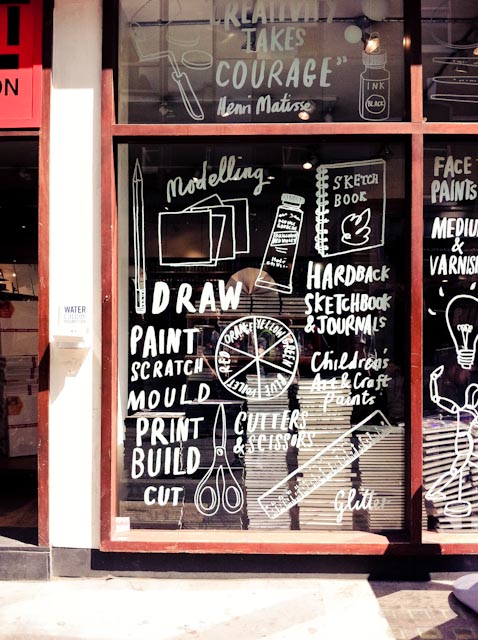 CREATIVITY
TAKES
COURAGE"
Henri Matisse
INK
BLACK
ON
Modelling
SKETCH
BOOK
DRAW
PAINT
SCRATCH
MOULD
PRINT
BUILD
CUT
RED ORANGE YELLOW GREEN BLUE VIOLET
CUTTERS
& SCISSORS
HARDBACK
SKETCHBOOK
& JOURNALS
Children's
Art & Craft
Paints
Glitter
FACE
PAINTS
MEDIUM
&
VARNISH
WATER